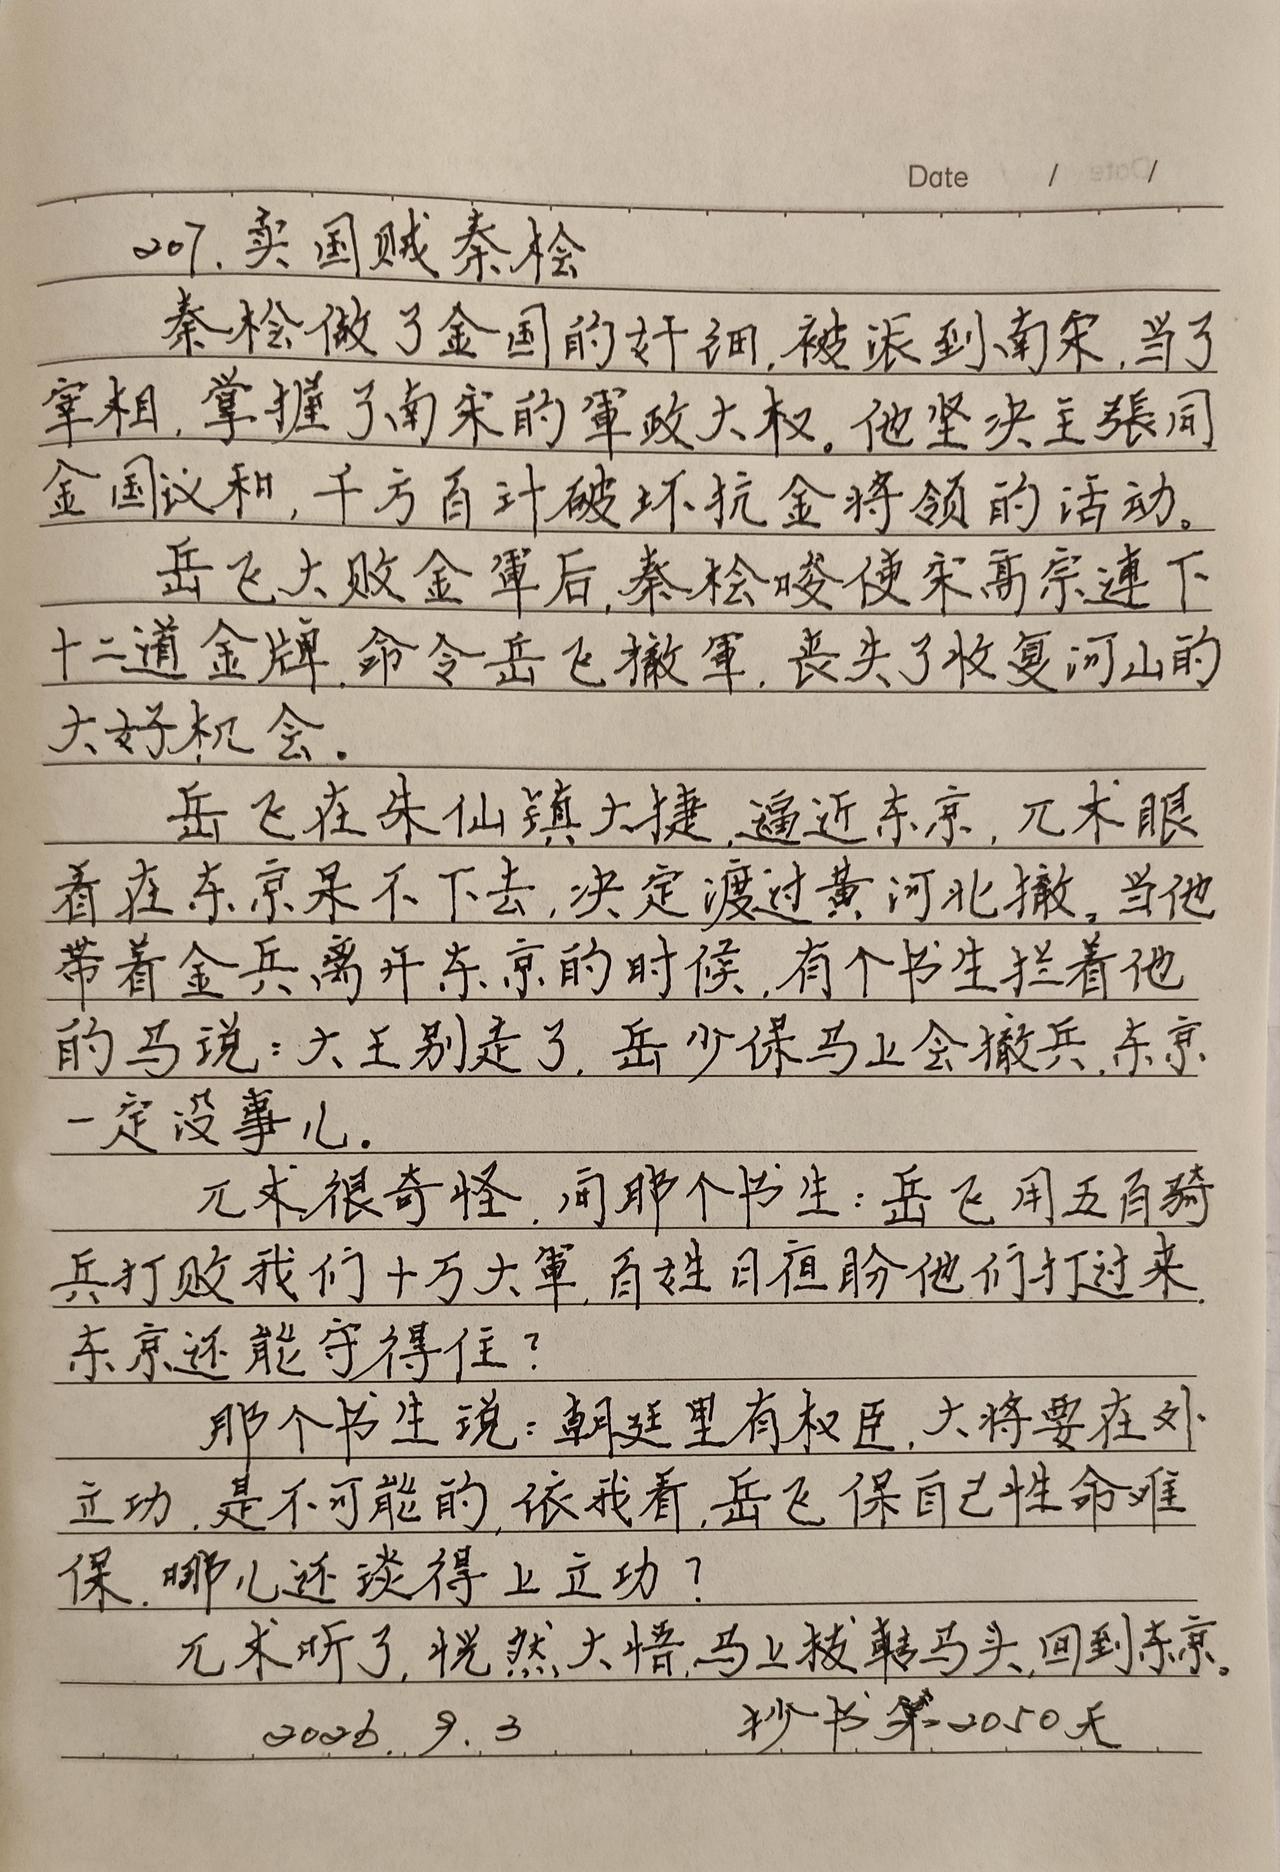 Date / /
207.卖国贼秦桧
秦桧做了金国的奸细,被派到南宋,当了
宰相,掌握了南宋的軍政大权。他坚决主張同
金国议和,千方百计破坏抗金将领的活动。
岳飞大败金軍后,秦桧唆使宋高宗連下
十二道金牌,命令岳飞撤軍,丧失了收复河山的
大好机会.
岳飞在朱仙镇大捷,逼近东京,兀术眼
看在东京呆不下去,决定渡过黄河北撤。当他
带着金兵离开东京的时候,有个书生拦着他
的马说:大王别走了,岳少保马上会撤兵,东京
一定没事儿.
兀术很奇怪,问那个书生:岳飞用五百骑
兵打败我们十万大軍,百姓日夜盼他们打过来,
东京还能守得住?
那个书生说:朝廷里有权臣,大将要在外
立功,是不可能的,依我看,岳飞保自己性命难
保,哪儿还谈得上立功?
兀术听了,恍然大悟,马上拨转马头,回到东京。
2026.9.3 抄书第2050天